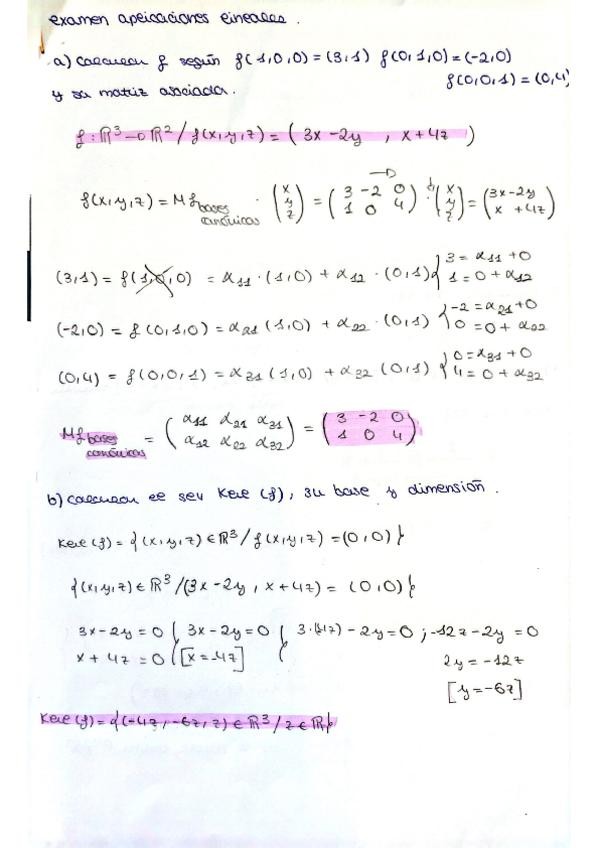 examen aplicaciones lineales.
a) Calcular f según f(1,0,0)=(3,1) f(0,1,0)=(-2,0)
f(0,0,1)=(0,4)
y su matriz asociada.
f: ℝ³→ℝ²/f(x,y,z)=(3x-2y, x+4z)
f(x,y,z) = Mf bases canónicas · (x y z) = (3 -2 0 / 1 0 4) · (x y z) = (3x-2y / x +4z)
(3,1) = f(1,0,0) = α11·(1,0) + α12·(0,1) { 3 = α11+0 / 1=0+α12
(-2,0) = f(0,1,0) = α21(1,0) + α22·(0,1) { -2=α21+0 / 0=0+α22
(0,4) = f(0,0,1) = α31(1,0) + α32(0,1) { 0=α31+0 / 4=0+α32
Mf bases canónicas = (α11 α21 α31 / α12 α22 α32) = (3 -2 0 / 1 0 4)
b) Calcular el sev Ker(f), su base y dimensión.
Ker(f) = {(x,y,z)∈ℝ³/f(x,y,z)=(0,0)}
{(x,y,z)∈ℝ³/(3x-2y, x+4z) = (0,0)}
3x-2y=0 { 3x-2y=0 { 3·(-4z)-2y=0; -12z-2y=0
x+4z=0 [x=-4z] 2y=-12z
[y=-6z]
Ker(f)={(-4z,-6z,z)∈ℝ³/z∈ℝ}